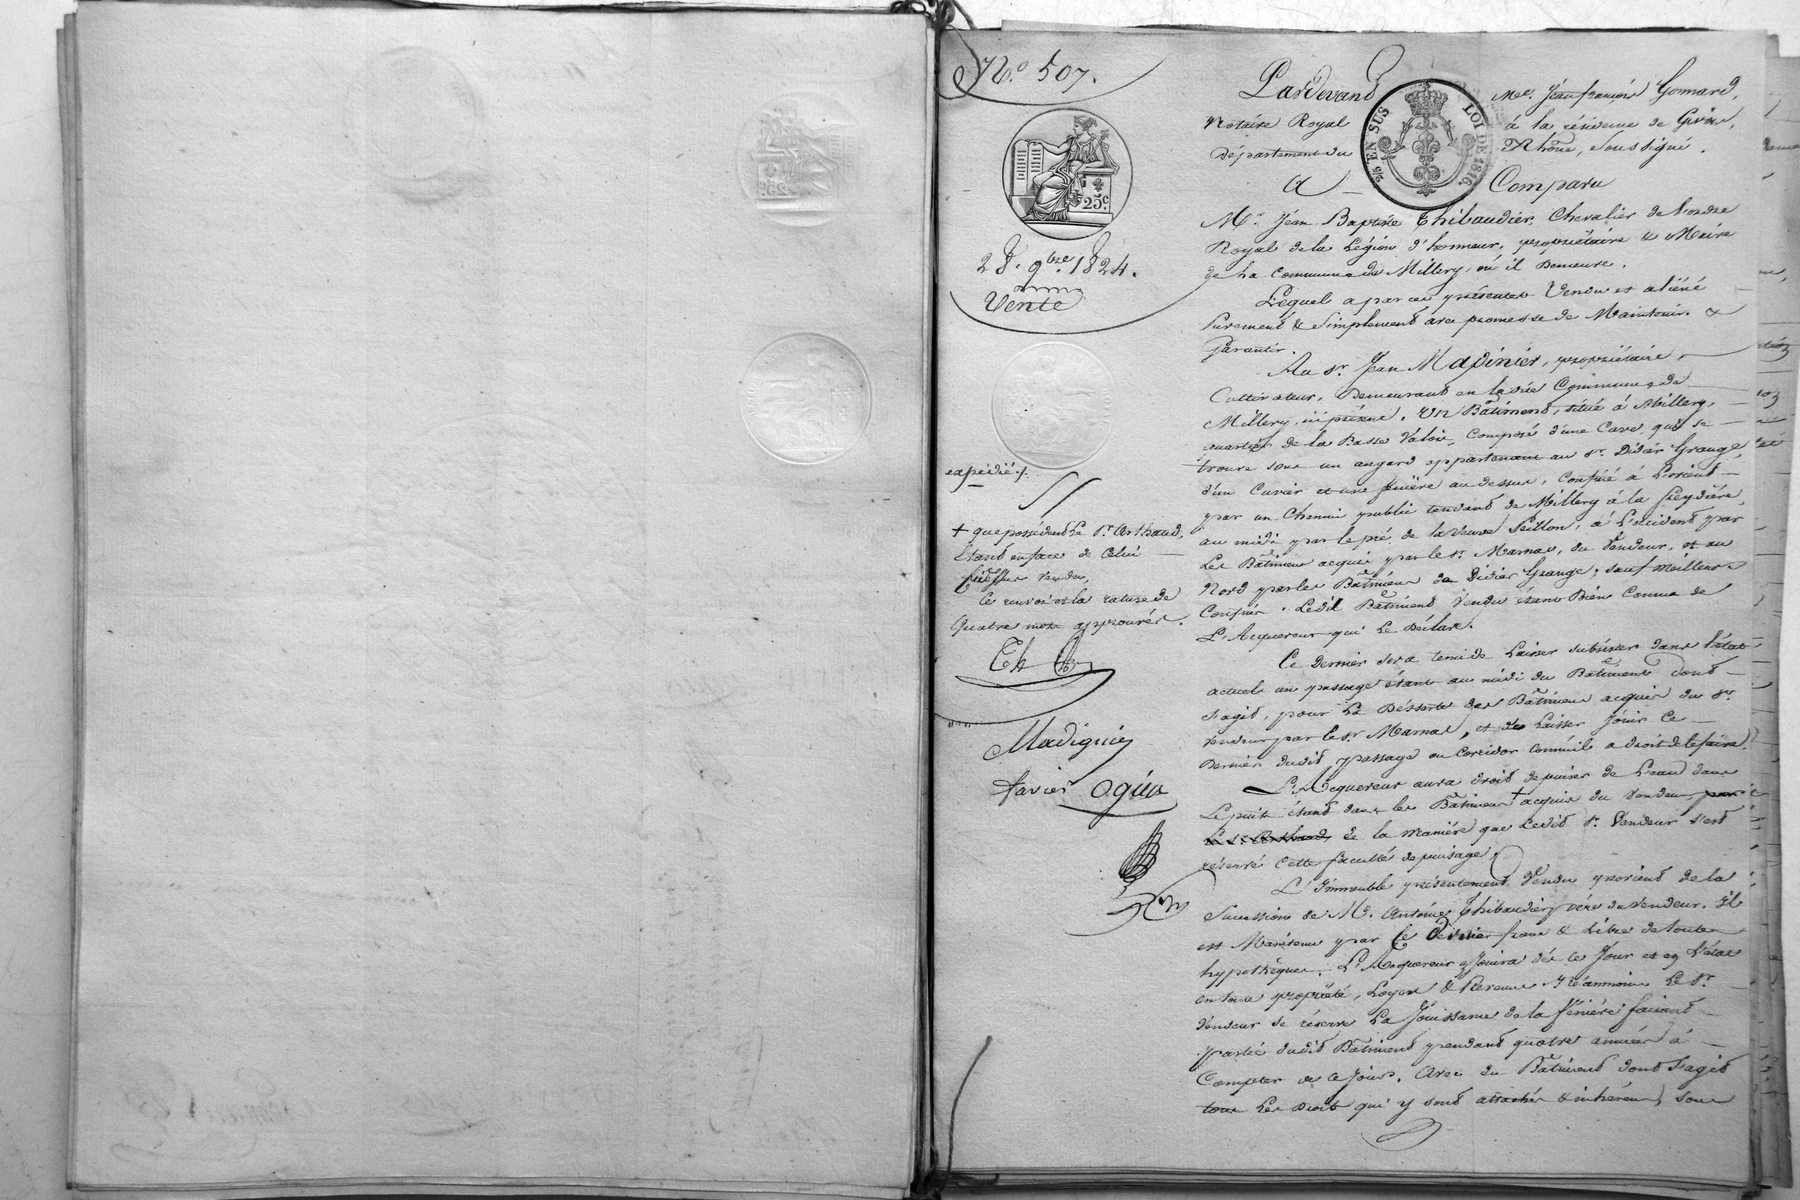 N.o 507.
25.c
28. 9bre. 1824.
Vente
expédié ./.
+ que possédent le Sr. Arthaud,
Etant en face de Celui
vendu,
le renvoi et la rature de
Quatre mots approuvés.
Th B
Madignié
Xavier Ogier
Pardevant Me. Jean françois Gomard,
EN SUS LOI DE 1816.
Notaire Royal à la résidence de Givors,
Département du Rhône, Soussigné.
A Comparu
Mr. Jean Baptiste Thibaudier, Chevalier de l'ordre
Royal de la Légion d'honneur, propriétaire & Maire
de la Commune de Millery, où il Demeure.
Lequel a par ces présentes Vendu et aliéné
Purement & Simplement avec promesse de Maintenir &
garantir.
Au Sr. Jean Madinier, propriétaire,
Cultivateur, Demeurant en ladite Commune de
Millery, ici présent, Un Bâtiment, situé à Millery,
quartier de la Basse Valois, Composé d'une Cave, qui se
trouve sous un angard appartenant au Sr. Didier Grange,
d'un Cuvier et une fenière au dessus, Confiné à L'orient
par un Chemin public tendant de Millery à la
au midi par le pré de la Veuve Seillon, à L'occident par
Les Bâtimens acquis par le Sr. Marnas, du Vendeur, et au
Nord par les Bâtimens de Didier Grange, sauf meilleurs
Confins. Ledit Bâtiment Vendu étant Bien Connu de
L'Acquereur qui Le Déclare.
Ce dernier sera tenu de Laisser subsister dans l'état
actuel un passage étant au midi du Bâtiment dont
s'agit, pour La Desserte des Bâtimens acquis du Sr.
vendeur par le Sr. Marnas, et de Laisser Jouir Ce
Dernier dudit passage ou Corridor comme il a droit de le faire.
L'Acquereur aura droit de puiser de L'eau dans
Le puit étant dans les Bâtimens + acquis du Vendeur, par
Le Sr. Arthaud, de la Manière que Ledit Sr. Vendeur s'est
réservé Cette faculté de puisage.
L'Immeuble présentement Vendu provient de la
Succession de M. Antoine Thibaudier, père du vendeur. Il
est Maintenu par Ce Dernier franc & Libre de toutes
hypothèques. L'Acquereur Jouira dès ce Jour et en l'état
en toute propriété, Loyers & Revenus. Néanmoins Le Sr.
Vendeur se réserve La Jouissance de la fenière faisant
partie dudit Bâtiment pendant quatre années à
Compter de ce Jour. Avec du Bâtiment dont s'agit
tous Les Droits qui y sont attachés & inhérens, sous